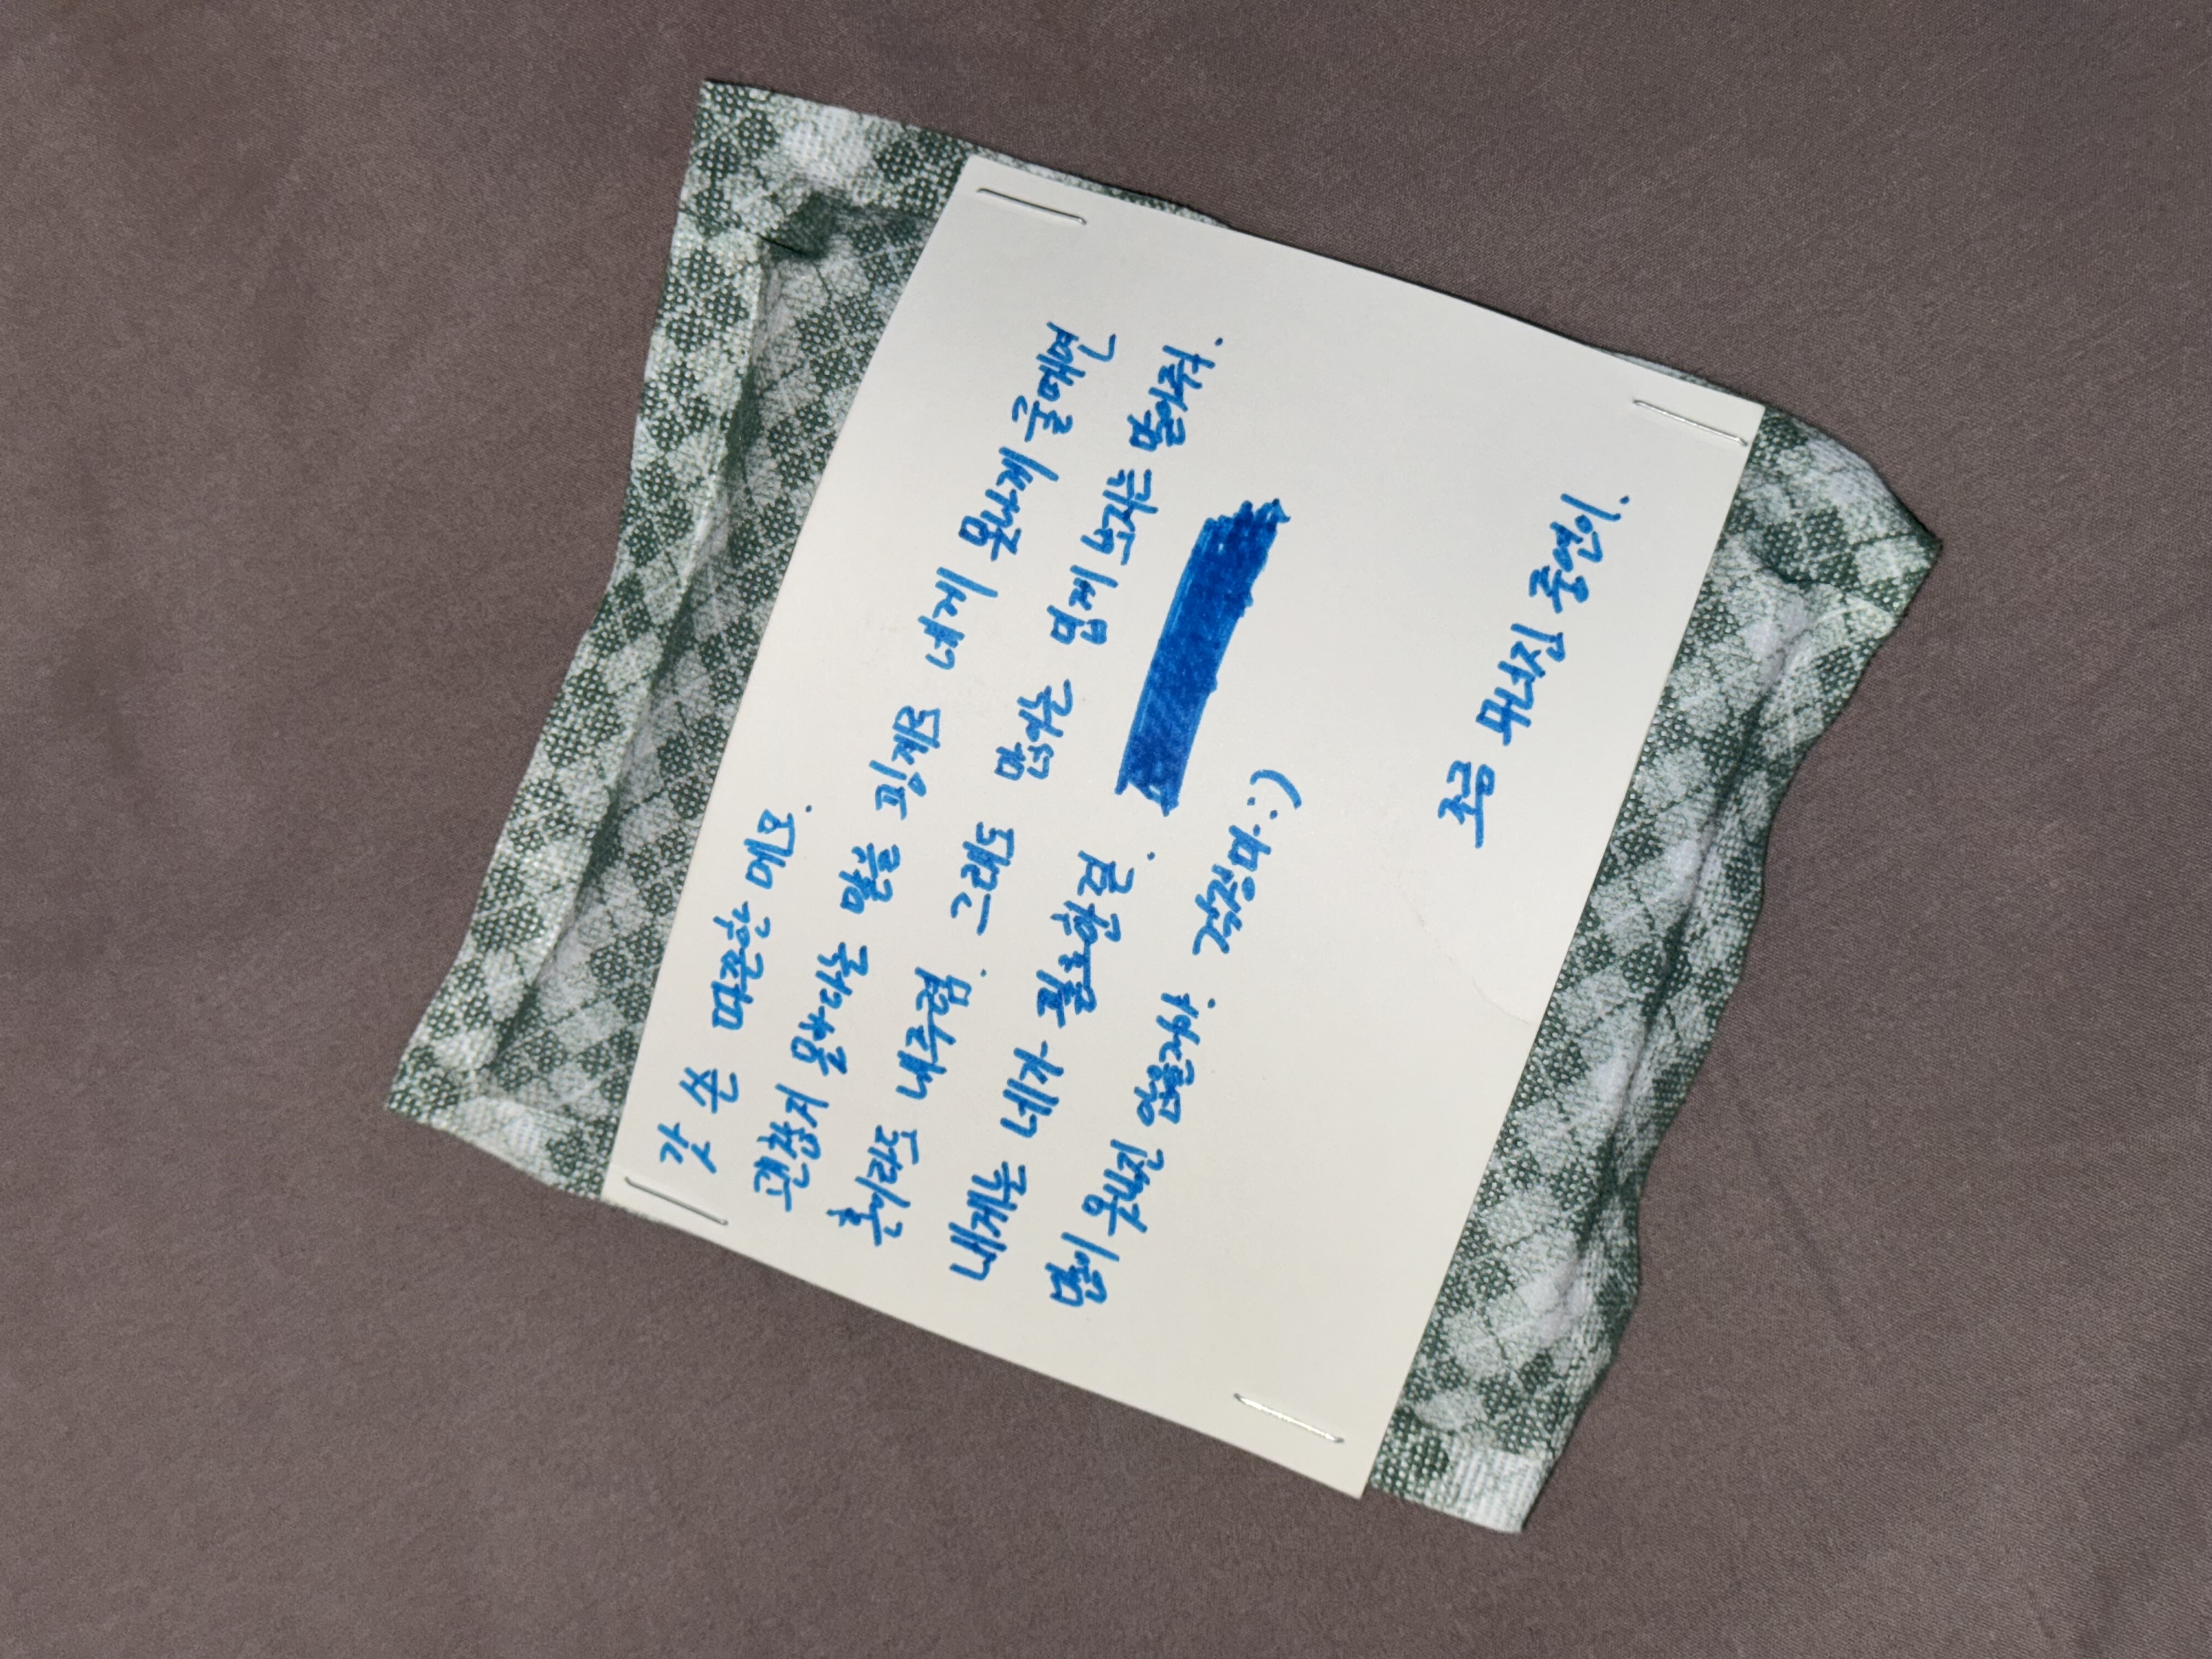 갓 쓴 따끈한 메모.
괜찮지 못하다는 말을 핑계로 네게 못나게 굴때면
혼이라도 내주렴. 그래도 많이는 밉게 보지는 말아줘.
내게는 네가 필요한걸.
많이 못나진 않을거야. 걱정마 :)
조금 무너진 중연이.